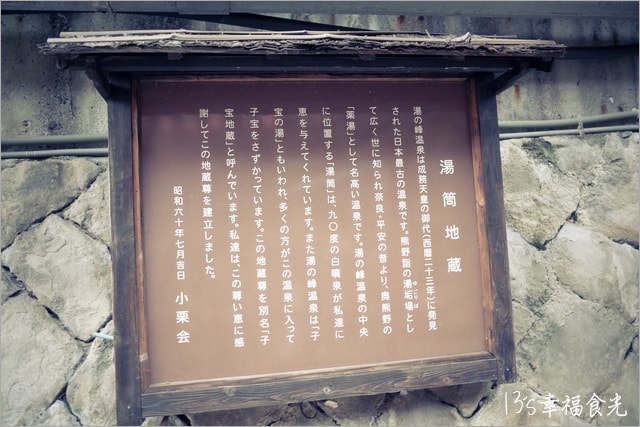 湯筒地蔵
湯の峰温泉は成務天皇の御代(西暦二十三年)に発見
された日本最古の温泉です。熊野詣の湯垢場とし
ゆごりば
て広く世に知られ奈良・平安の昔より、奥熊野の
「薬湯」として名高い温泉です。湯の峰温泉の中央
に位置する「湯筒」は、九〇度の自噴泉が私達に
恵を与えてくれています。また湯の峰温泉は「子
宝の湯」ともいわれ、多くの方がこの温泉に入って
子宝をさずかっています。この地蔵尊を別名「子
宝地蔵」と呼んでいます。私達は、この尊い恵に感
謝してこの地蔵尊を建立しました。
昭和六十年七月吉日 小栗会
13's幸福食光